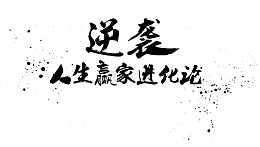 逆袭
人生赢家进化论